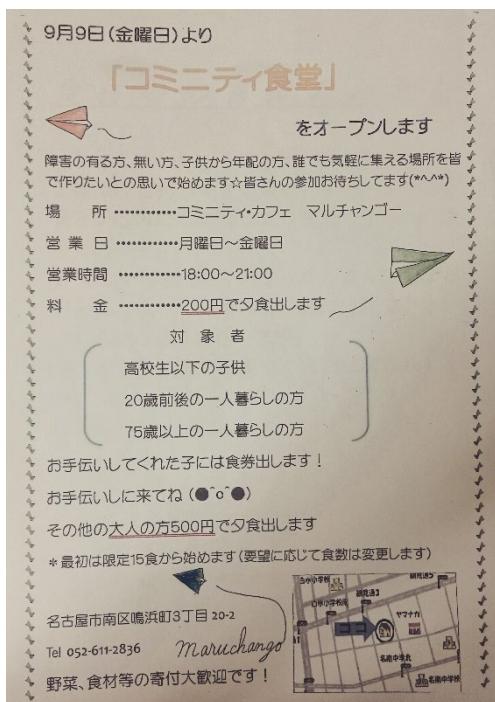 9月9日(金曜日)より
「コミニティ食堂」
をオープンします
障害の有る方、無い方、子供から年配の方、誰でも気軽に集える場所を皆
で作りたいとの思いで始めます☆皆さんの参加お待ちしてます(*^_^*)
場　所 ・・・・・・・・・・・・コミニティ・カフェ　マルチャンゴー
営業日 ・・・・・・・・・・・・月曜日〜金曜日
営業時間 ・・・・・・・・・・・・18:00〜21:00
料　金 ・・・・・・・・・・・・200円で夕食出します
対　象　者
高校生以下の子供
20歳前後の一人暮らしの方
75歳以上の一人暮らしの方
お手伝いしてくれた子には食券出します！
お手伝いしに来てね (●^o^●)
その他の大人の方500円で夕食出します
＊最初は限定15食から始めます(要望に応じて食数は変更します)
名古屋市南区鳴浜町3丁目 20-2
Tel 052-611-2836
maruchango
野菜、食材等の寄付大歓迎です！
ヤマナカ
名南中学北
名南中学校